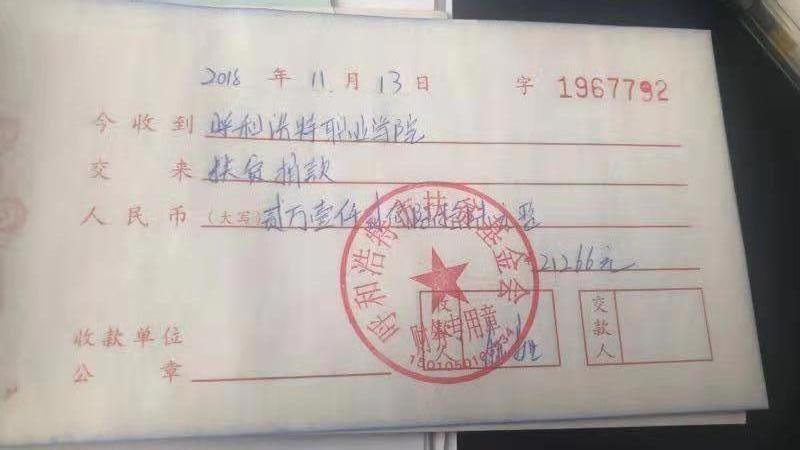 2018 年 11 月 13 日 字 1967792
今收到 呼和浩特职业学院
交 来 扶贫捐款
人民币 (大写) 贰万壹仟贰佰陆拾陆元整
21266元
收款人
交款人
收款单位
公 章
基金会
财务专用章